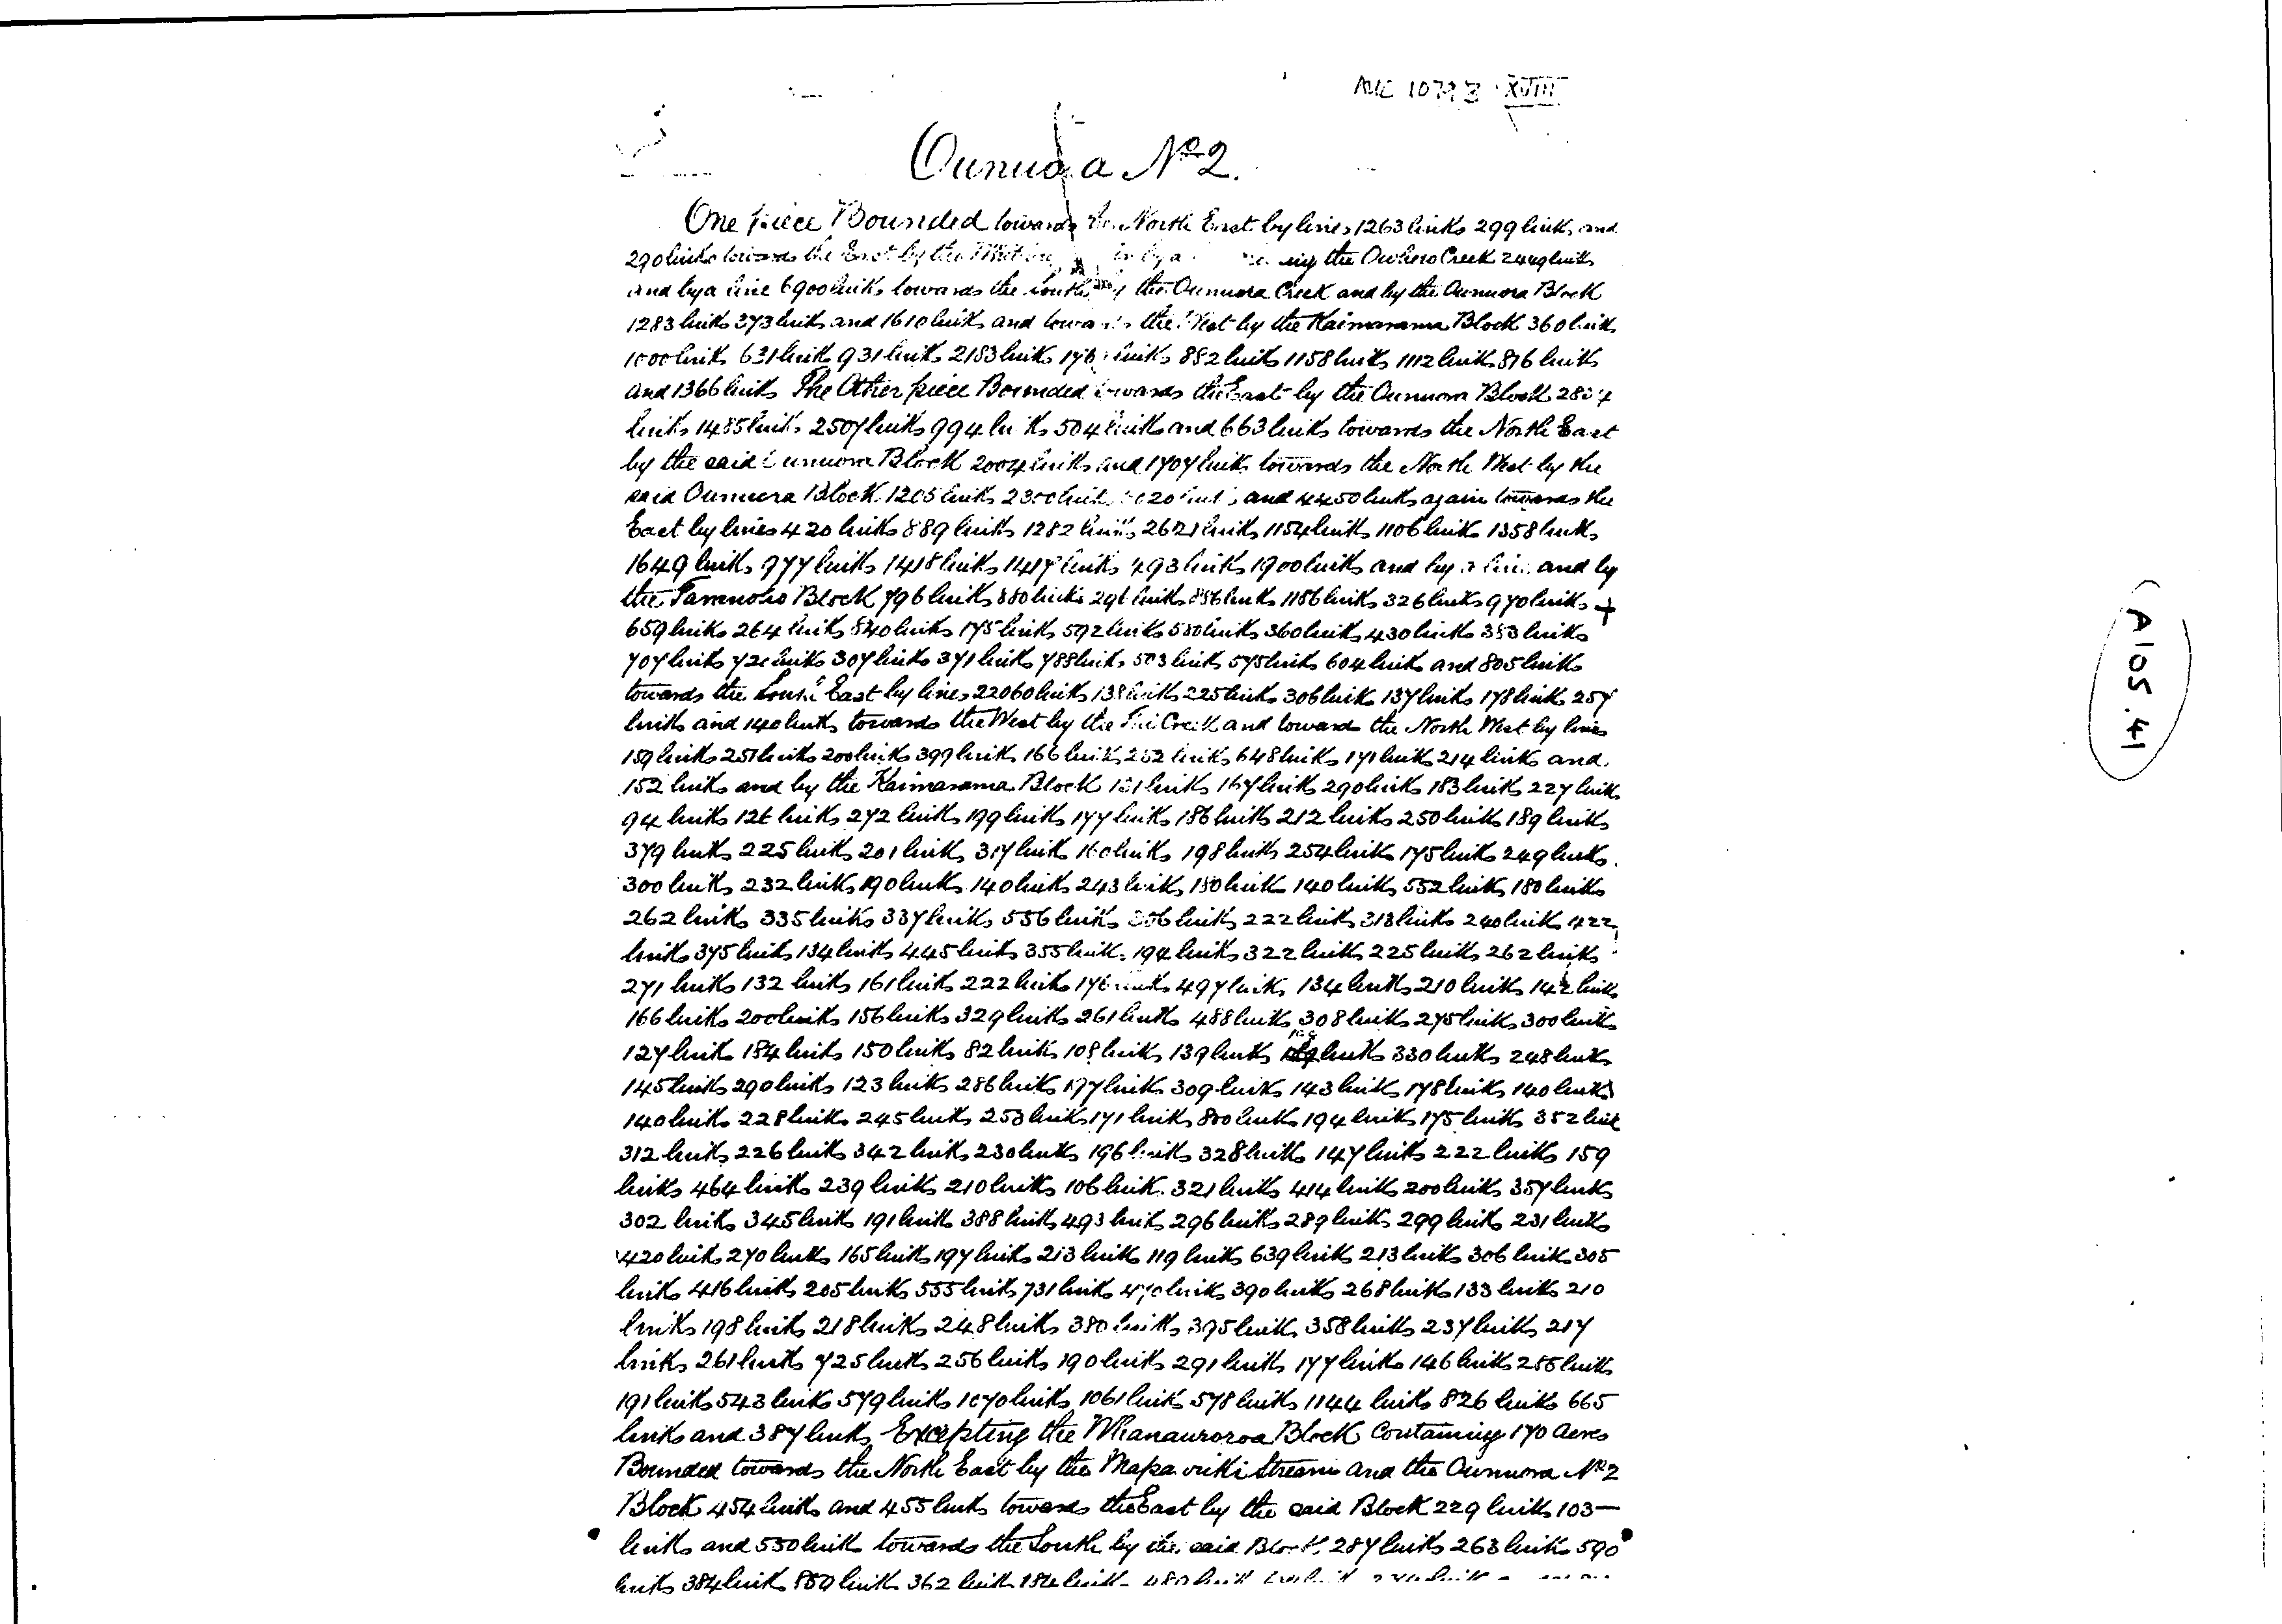 AUC 1079 3 XVIII
Ounuora No 2.
One piece Bounded towards the North East by lines 1263 links 299 links and
290 links towards the East by the by a the Owhero Creek 2449 links
and by a line 6900 links towards the South by the Ounuora Creek and by the Ounuora Block
1283 links 373 links and 1610 links and towards the West by the Kaimarama Block 360 links
1000 links 631 links 931 links 2183 links links 882 links 1158 links 1112 links 816 links
and 1366 links The Other piece Bounded towards the East by the Ounuora Block
links 1485 links 2507 links 994 links 504 links and 663 links towards the North East
by the said Ounuora Block 2004 links and 1707 links towards the North West by the
said Ounuora Block 1205 links 2300 links links and 4450 links again towards the
East by lines 420 links 889 links 1282 links 2621 links 1154 links 1106 links 1358 links
1649 links 977 links 1418 links 1417 links 493 links 1900 links and by a line and by
the Block 796 links 880 links links 886 links 1186 links 326 links 970 links +
659 links 264 links 840 links 175 links 592 links 580 links 360 links 430 links 383 links
707 links links 307 links 371 links 788 links 503 links 575 links 604 links and 805 links
towards the South East by lines 22060 links 138 links 225 links 306 links 137 links 178 links 257
links and 140 links towards the West by the Creek and towards the North West by lines
159 links 251 links 200 links 399 links 166 links 252 links 648 links 171 links 214 links and
152 links and by the Kaimarama Block links 167 links 290 links 183 links 227 links
94 links links 272 links 199 links 177 links 186 links 212 links 250 links 189 links
379 links 225 links 201 links 317 links 160 links 198 links 254 links 175 links 249 links
300 links 232 links 190 links 140 links 243 links 180 links 140 links 552 links 180 links
262 links 335 links 337 links 556 links 306 links 222 links 313 links 240 links 422
links 375 links 134 links 445 links 355 links 194 links 322 links 225 links 262 links
271 links 132 links 161 links 222 links links 497 links 134 links 210 links 142 links
166 links 200 links 156 links 329 links 261 links 488 links 308 links 275 links 300 links
127 links 184 links 150 links 82 links 108 links 139 links links 330 links 248 links
145 links 290 links 123 links 286 links 177 links 309 links 143 links 178 links 140 links
140 links 228 links 245 links 253 links 171 links 800 links 194 links 175 links 352 links
312 links 226 links 342 links 230 links 196 links 328 links 147 links 222 links 159
links 464 links 239 links 210 links 106 links 321 links 414 links 200 links 357 links
302 links 345 links 191 links 388 links 493 links 296 links 289 links 299 links 231 links
420 links 270 links 165 links 197 links 213 links 119 links 639 links 213 links 306 links 305
links 416 links 205 links 555 links 731 links 470 links 390 links 268 links 133 links 210
links 198 links 218 links 248 links 380 links 395 links 358 links 237 links 217
links 261 links 725 links 256 links 190 links 291 links 177 links 146 links 256 links
191 links 543 links 579 links 1070 links 1061 links 578 links 1144 links 826 links 665
links and 387 links Excepting the Whanauroroa Block Containing 170 Acres
Bounded towards the North East by the Stream and the Ounuora No 2
Block 454 links and 455 links towards the East by the said Block 229 links 103—
links and 530 links towards the South by the said Block 287 links 263 links 590
links 384 links 850 links 362 links 184 links
A105.41